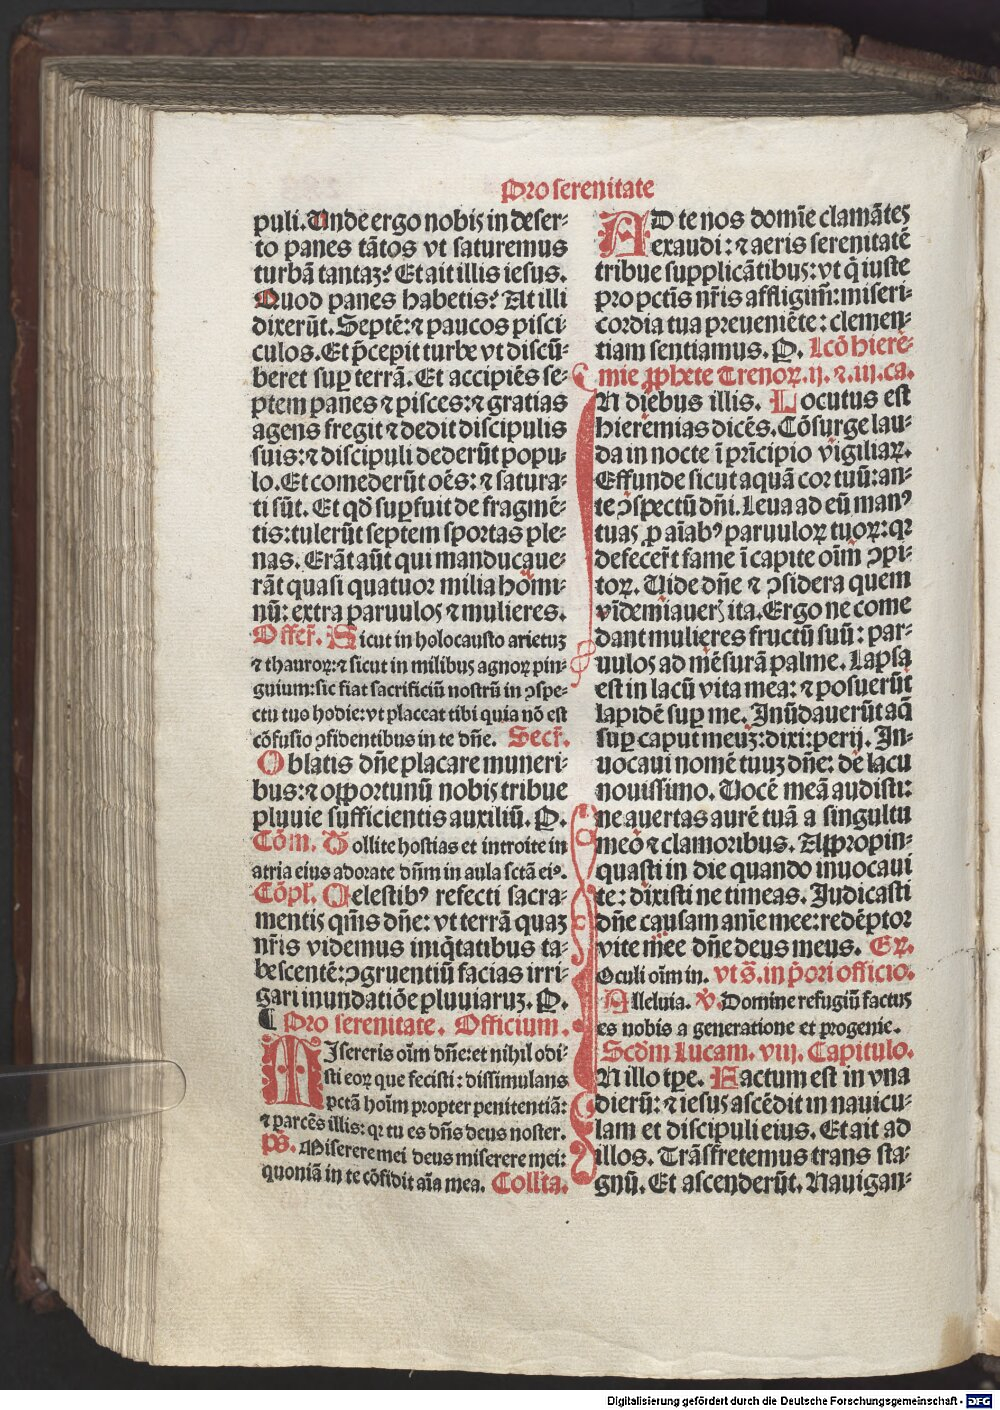 Pro serenitate
puli. Unde ergo nobis in deser-
to panes tãtos vt saturemus
turbã tantaz? Et ait illis iesus.
Quod panes habetis? At illi
dixerũt. Septẽ: ⁊ paucos pisci-
culos. Et p̃cepit turbe vt discũ-
beret suꝑ terrã. Et accipiẽs se-
ptem panes ⁊ pisces: ⁊ gratias
agens fregit ⁊ dedit discipulis
suis: ⁊ discipuli dederũt popu-
lo. Et comederũt oẽs: ⁊ satura-
ti sũt. Et qd̃ suꝑfuit de fragmẽ-
tis: tulerũt septem sportas ple-
nas. Erãt aũt qui manducaue-
rãt quasi quatuor milia hom̃i-
nũ: extra paruulos ⁊ mulieres.
Offer̃. Sicut in holocausto arietuz
⁊ thauroꝝ: ⁊ sicut in milibus agnoꝝ pin-
guium: sic fiat sacrificiũ nostrũ in ↄspe-
ctu tuo hodie: vt placeat tibi quia nõ est
cõfusio ↄfidentibus in te dñe. Secr̃.
Oblatis dñe placare muneri-
bus: ⁊ oꝑportunũ nobis tribue
pluuie sufficientis auxiliũ. P.
Cõm. Tollite hostias et introite in
atria eius adorate dñm in aula sctã eiꝰ.
Cõpl̃. Celestibꝰ refecti sacra-
mentis qm̃s dñe: vt terrã quaz
nr̃is videmus iniq̃tatibus ta-
bescentẽ: ↄgruentiũ facias irri-
gari inundatiõe pluuiaruz. P.
¶ Pro serenitate. Officium.
Misereris oĩm dñe: et nihil odi-
sti eoꝝ que fecisti: dissimulans
pctã hoĩm propter penitentiã:
⁊ parcẽs illis: qꝛ tu es dñs deus noster.
ps̃. Miserere mei deus miserere mei:
quoniã in te cõfidit aĩa mea. Collcta.
AD te nos domĩe clamãtes
exaudi: ⁊ aeris serenitatẽ
tribue supplicãtibus: vt q̃ iuste
pro pctĩs nr̃is affligim̃: miseri-
cordia tua preueniẽte: clemen-
tiam sentiamus. P. Lcõ hiere-
mie ꝓphete Trenoꝝ. ij. ⁊. iij. ca.
In diebus illis. Locutus est
hieremias dicẽs. Cõsurge lau-
da in nocte ĩ prĩcipio vigiliaꝝ.
Effunde sicut aquã cor tuũ: an-
te ↄspectũ dñi. Leua ad eũ manꝰ
tuas ꝓ aĩabꝰ paruuloꝝ tuoꝝ: qꝛ
defecer̃t fame ĩ capite oĩm ↄpi-
toꝝ. Uide dñe ⁊ ↄsidera quem
vĩdemiaueris ita. Ergo ne come
dant mulieres fructũ suũ: par-
uulos ad mẽsurã palme. Lapsa
est in lacũ vita mea: ⁊ posuerũt
lapidẽ suꝑ me. Inũdauerũt aq̃
suꝑ caput meuz: dixi: perij. In-
uocaui nomẽ tuuz dñe: de lacu
nouissimo. Uocẽ meã audisti:
ne auertas aurẽ tuã a singultu
meo ⁊ clamoribus. Appropin-
quasti in die quando inuocaui
te: dixisti ne timeas. Iudicasti
dñe causam anĩe mee: redẽptor
vite mee dñe deus meus. Gꝝ.
Oculi oĩm in. vt s̃. in p̃ori officio.
Alleluia. v̊. Domine refugiũ factus
es nobis a generatione et progenie.
Scd̃m Lucam. viij. Capitulo.
In illo tꝑe. Factum est in vna
dierũ: ⁊ iesus ascẽdit in nauicu-
lam et discipuli eius. Et ait ad
illos. Trãsfretemus trans sta-
gnũ. Et ascenderũt. Nauigan-
Digitalisierung gefördert durch die Deutsche Forschungsgemeinschaft - DFG